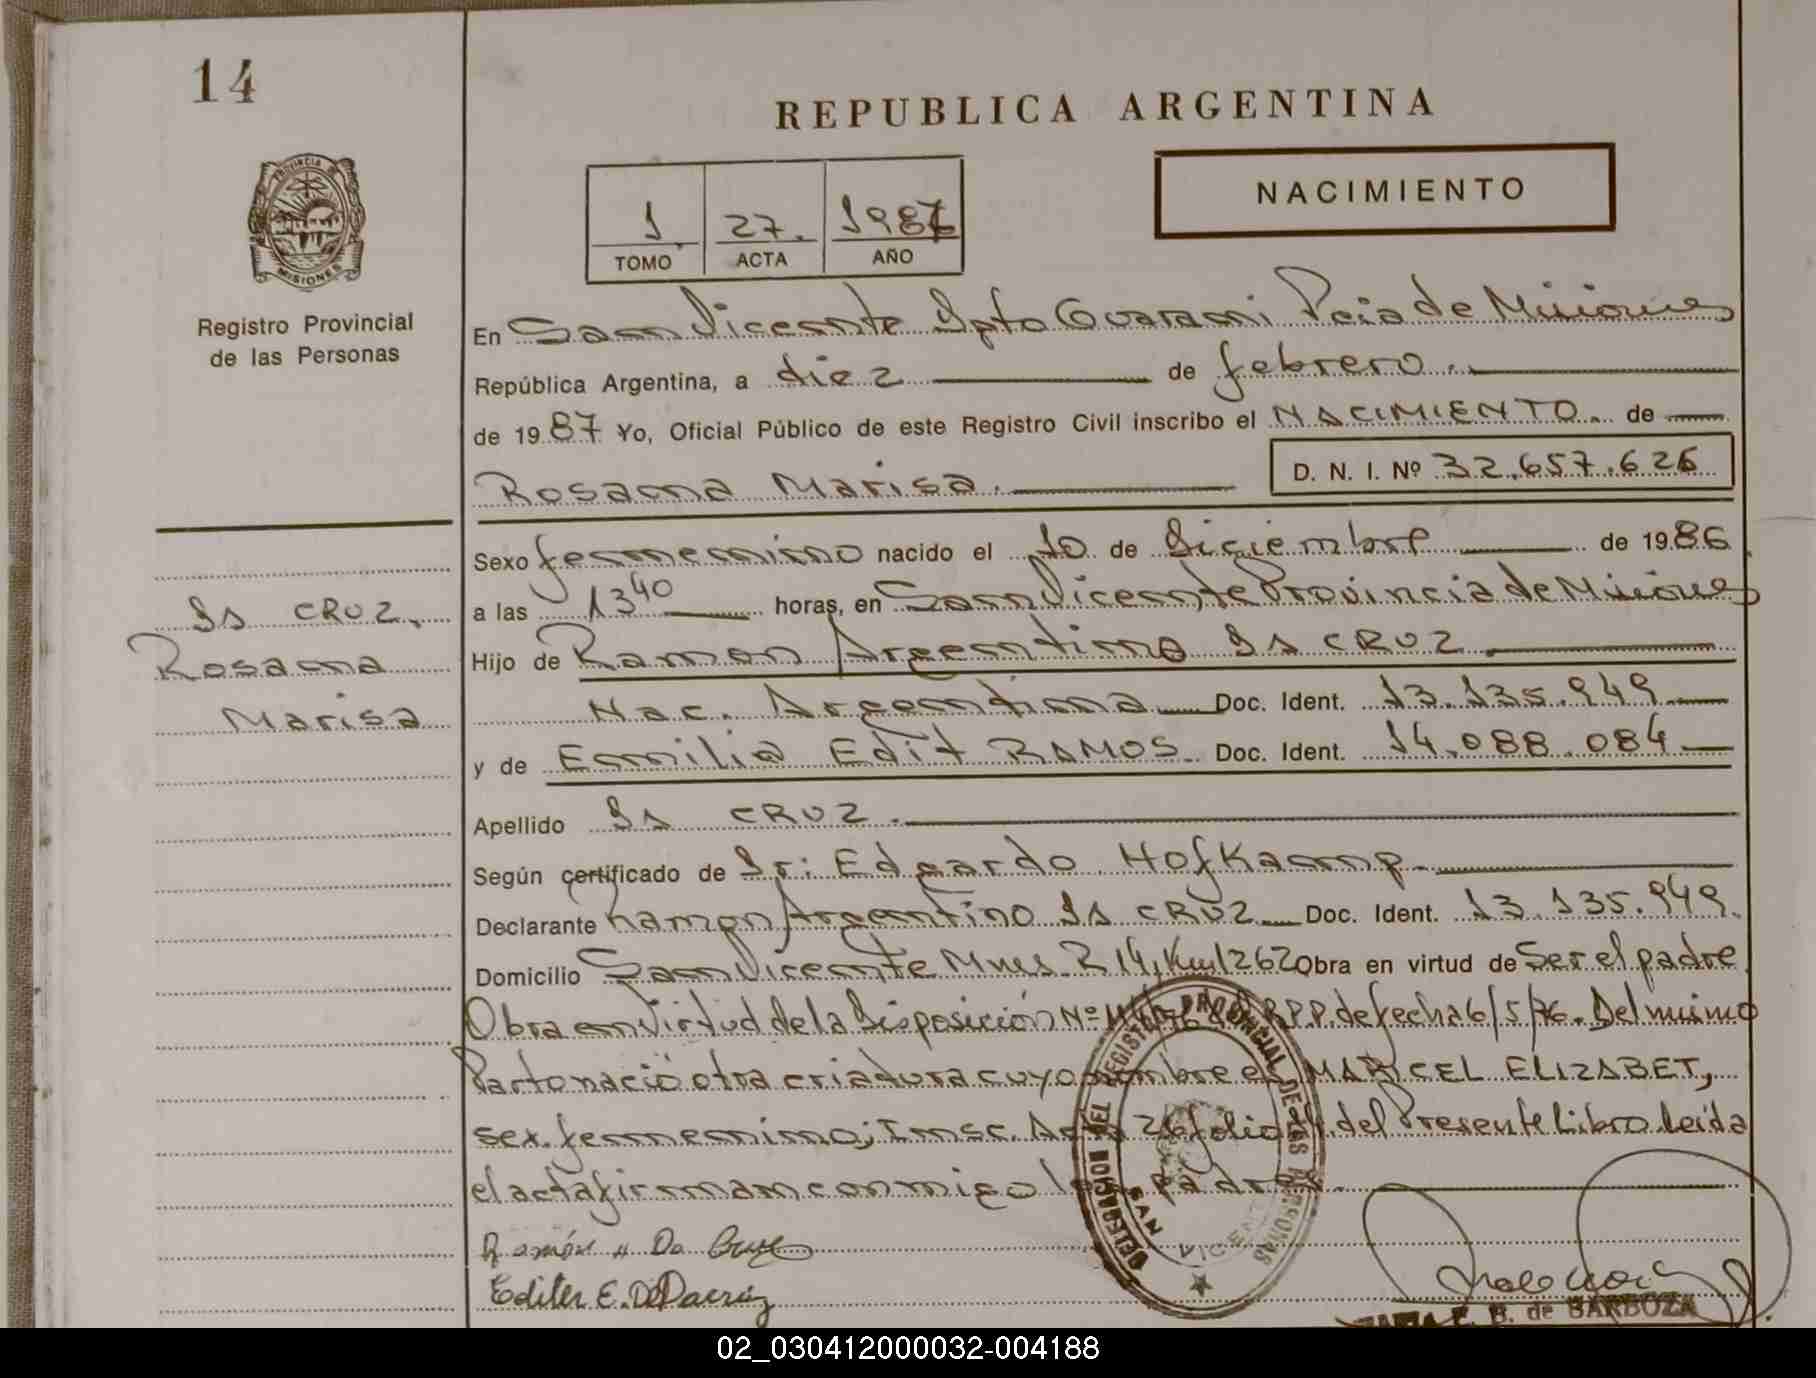 14
REPUBLICA ARGENTINA
PROVINCIA DE
MISIONES
Registro Provincial
de las Personas
1 27. 1987
TOMO ACTA AÑO
NACIMIENTO
En San Vicente Dpto Guarani Pcia de Misiones
República Argentina, a diez de febrero.
de 1987 Yo, Oficial Público de este Registro Civil inscribo el NACIMIENTO. de
Rosana Marisa. D. N. I. Nº 32.657.626
Sexo femenino nacido el 10 de Diciembre de 1986
a las 13 40 horas, en San Vicente Provincia de Misiones
Hijo de Ramon Argentino DA CRUZ
Nac. Argentina Doc. Ident. 13.135.949
y de Emilia Edit RAMOS Doc. Ident. 14.088.084
Apellido DA CRUZ.
Según certificado de Dr: Edgardo Hofkamp
Declarante Ramon Argentino DA CRUZ Doc. Ident. 13.135.949.
Domicilio San Vicente Mnes R 14, Km 1262 Obra en virtud de Ser el padre
Obra en Virtud de la Disposición Nº R.P.P. de fecha 6/5/76. Del mismo
Parto nació otra criatura cuyo nombre es MARICEL ELIZABET,
sex. femenino; Insc. Acta 26 folio del Presente Libro. Leida
el acta firman conmigo los padres.
DA CRUZ.
Rosana
Marisa
Ramón A Da Cruz
DELEGACION DEL REGISTRO PROVINCIAL DE LAS PERSONAS
SAN VICENTE
E. B. de BARBOZA
02_030412000032-004188